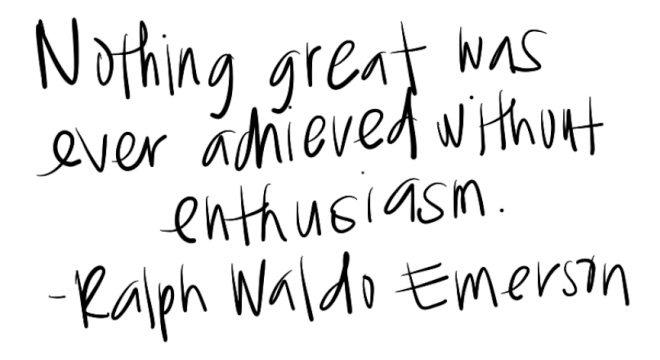 Nothing great was
ever achieved without
enthusiasm.
-Ralph Waldo Emerson